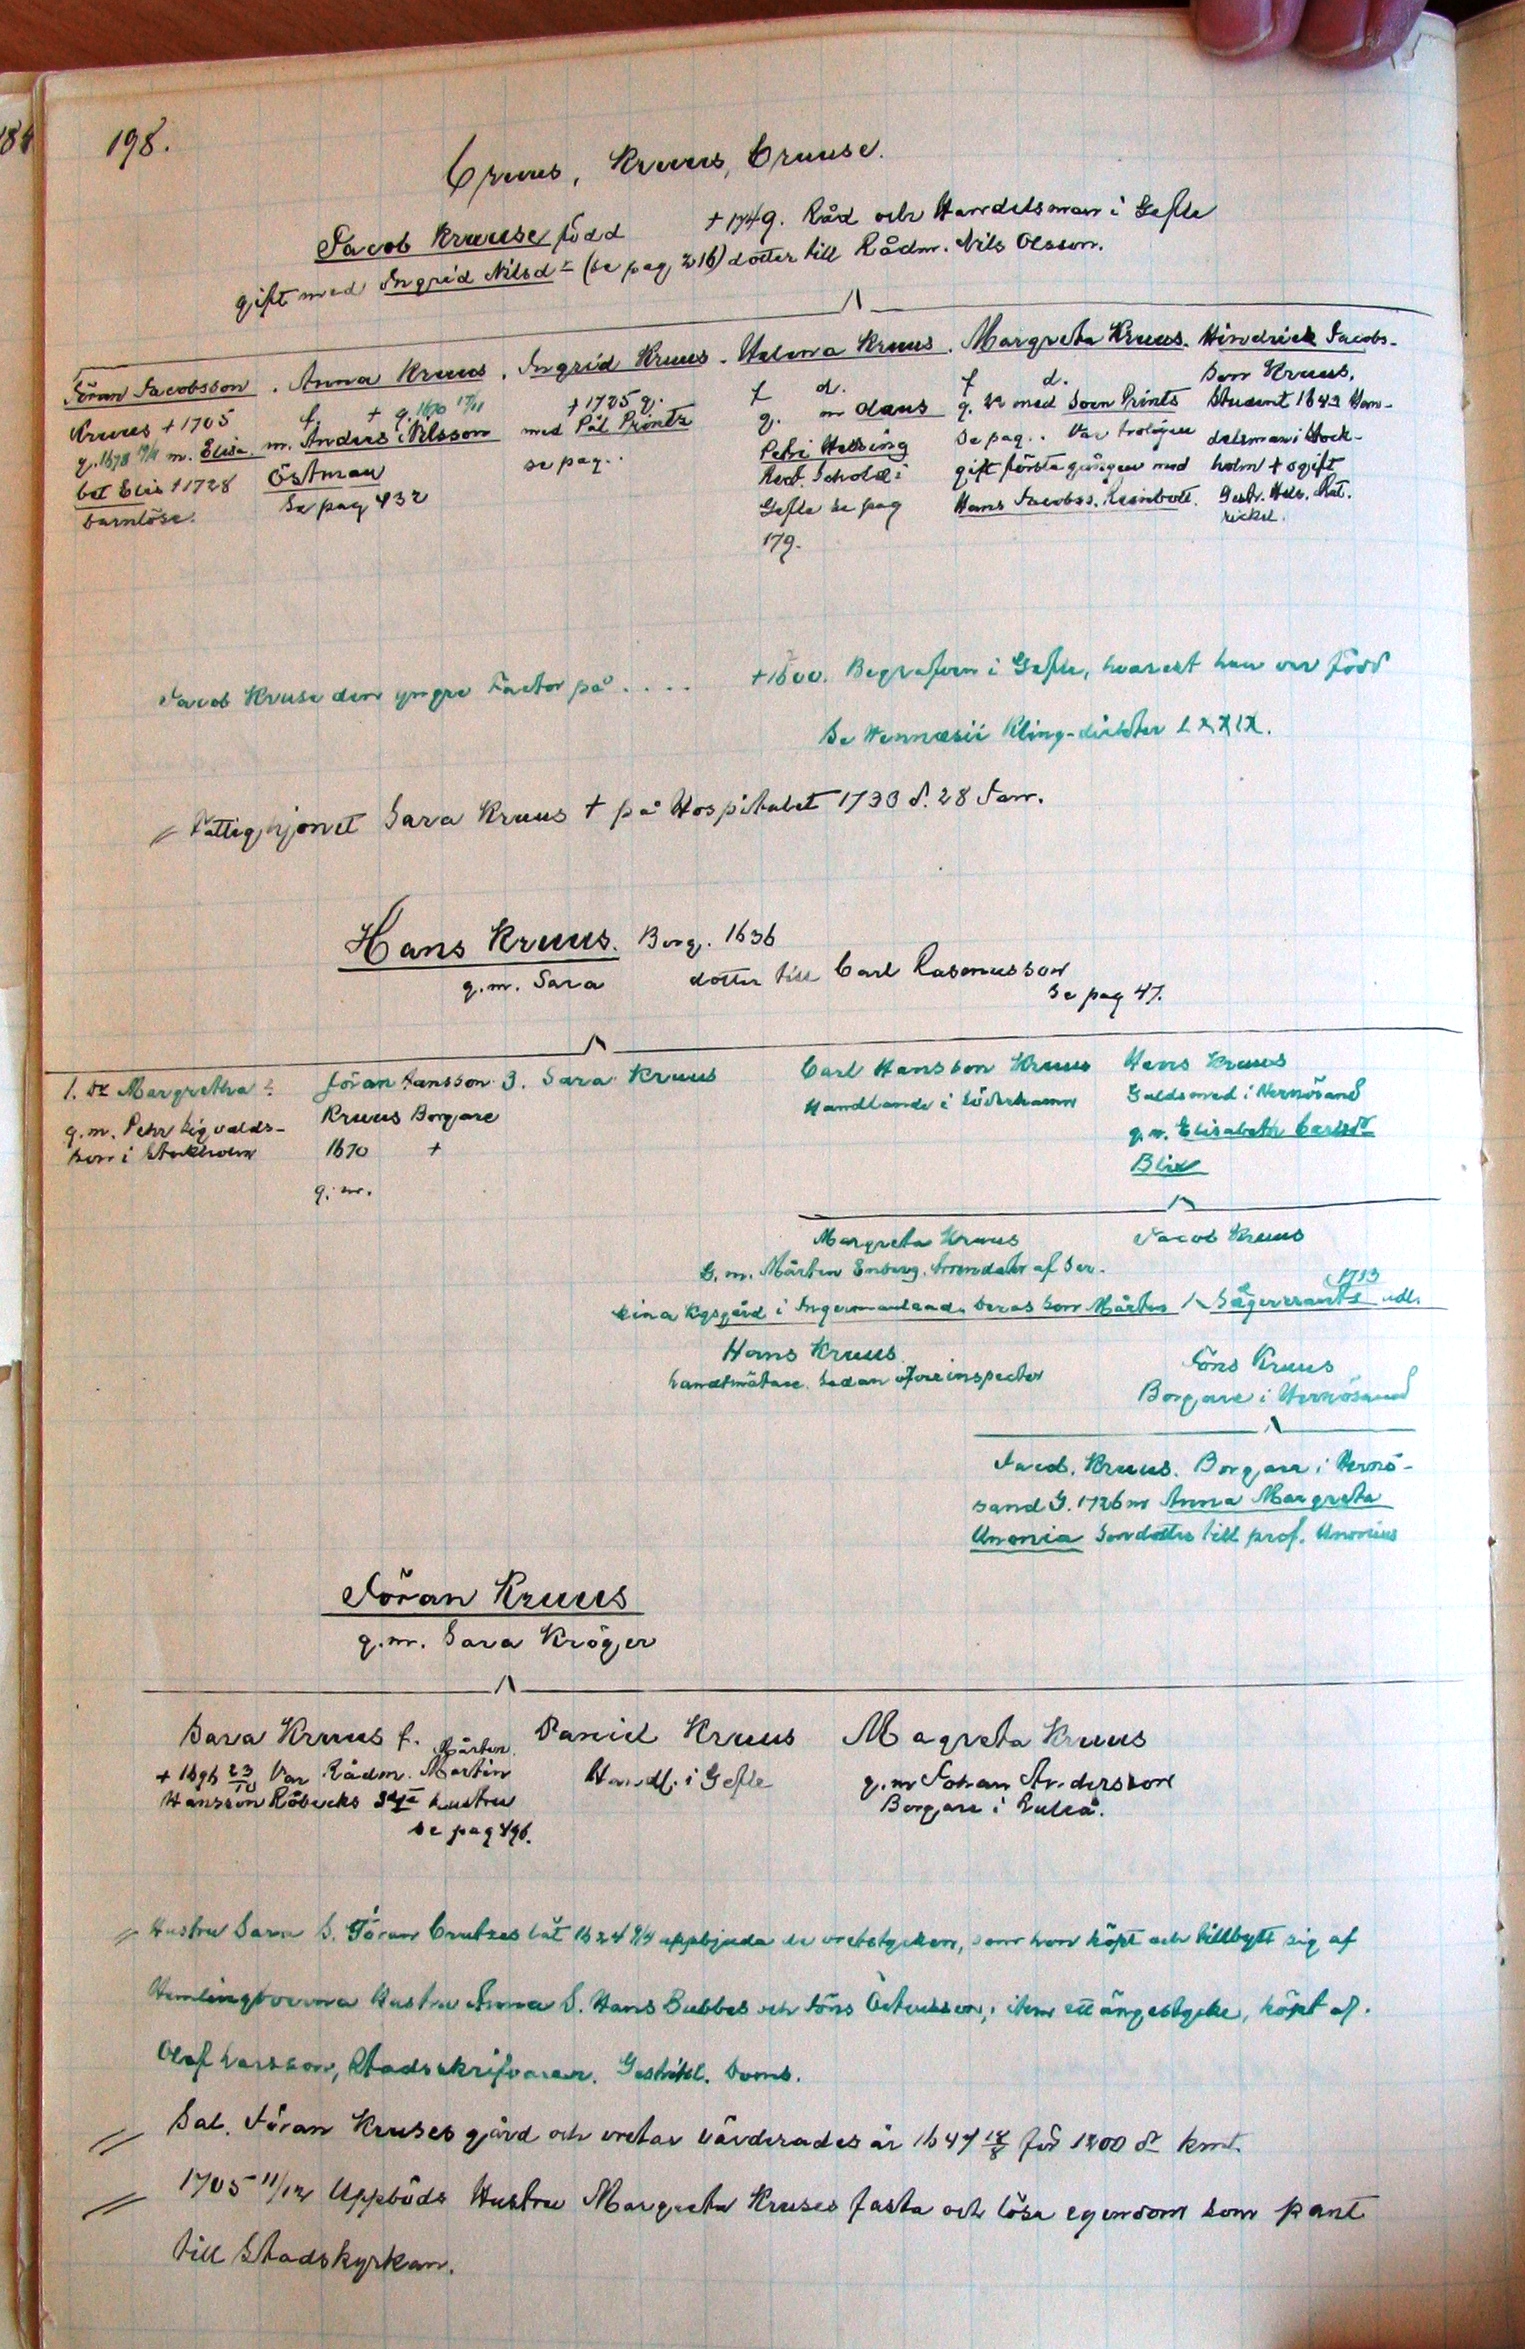 184
198.
Cruus, Kruus, Cruuse.
Jacob Kruuse född † 1749. Råd och Handelsman i Gefle
gift med Ingrid Nilsdr (se pag 216) dotter till Rådm. Nils Olsson.
Jöran Jacobsson
Kruus † 1705
g. 1678 m. Elisa-
bet Elis † 1728
barnlöse.
Anna Kruus
f. † g. 1670 17/11
m. Anders Nilsson
Östman
Se pag 432
Ingrid Kruus
† 1725 g.
med Pål Printz
se pag..
Helena Kruus
f d.
g. m Claus
Petri Helsing
Rect. Scholæ i
Gefle se pag
179.
Margreta Kruus.
f d.
g. 2a med Soen Prints
Se pag.. Var troligen
gift första gången med
Hans Jacobss. Reinbott.
Hindrick Jacobs-
son Kruus.
Student 1643 Han-
delsman i Stock-
holm † ogift
Gestr. Hels. Nat.
rickel.
Jacob Kruse den yngre Factor på .... † 1600. Begrafven i Gefle, hvarest han var född
Se Wennæsii Kling-dickter LXXIX.
// Fattighjonet Sara Kruus † på Hospitalet 1733 d. 28 Jan.
Hans Kruus. Borg. 1636
g.m. Sara dotter till Carl Rasmusson
Se pag 47.
1. Dr Margretha
g.m. Pehr Sigvalds-
son i Stockholm
Jöran Hansson
Kruus Borgare
1670 †
g. m.
3. Sara Kruus
Carl Hansson Kruus
Handlande i Söderhamn
Hans Kruus
Guldsmed i Hernösand
g.m. Elisabeth Carlsdr
Blix
Margreta Kruus
G. m. Mårten Enberg. Arrendator af Ser-
kina Kgsgård i Ingermanland. Deras son Mårten
Jacob Kruus
1713
Sägerkrantz adl.
Hans Kruus
Landtmätare. Sedan öfverinspector
Jöns Kruus
Borgare i Hernösand
Jacob. Kruus. Borgare i Hernö-
sand G. 1726 m Anna Margreta
Unonia Sondotter till prof. Unonius
Jöran Kruus
g.m. Sara Kröger
Sara Kruus f.
† 1696 23/10 Var Rådm. Mårten
Hansson Röbecks 3dje hustru
se pag 496.
Daniel Kruus
Handl. i Gefle
Magreta Kruus
g.m Johan Andersson
Borgare i Luleå.
// Hustru Sara S. Jöran Crutzes lät 1624 9/4 uppbjuda de vretstycken, som hon köpt och tillbytt sig af
Hemlingboerna Hustru Anna S. Hans Bubbes och Jöns item ett ängestycke, köpt af.
Olof Larsson, Stadsskrifvaren. Gestrikl. Domb.
// Sal. Jöran Kruses gård och vretar värderades år 1647 18/8 för 1200 dr kmt.
// 1705 11/12 Uppböds Hustru Margreta Kruses fasta och lösa egendom som pant
till Stadskyrkan.